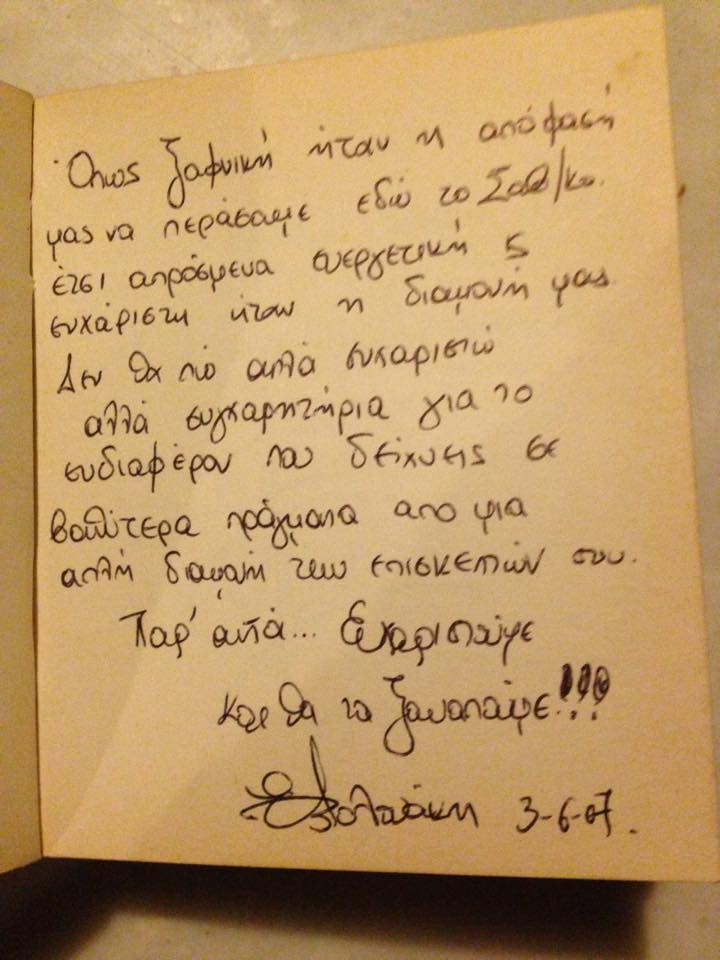 Όπως ξαφνική ήταν η απόφασή
μας να περάσουμε εδώ το Σαβ/κο.
έτσι απρόσμενα ευεργετική ς
ευχάριστη ήταν η διαμονή μας.
Δεν θα πω απλά ευχαριστώ
αλλά συγχαρητήρια για το
ενδιαφέρον που δείχνεις σε
βαθύτερα πράγματα απο μια
απλή διαμονή των επισκεπών σου.
Παρ' αυτά... Ευχαριστούμε
και θα τα ξαναπούμε!!!
3-6-07.